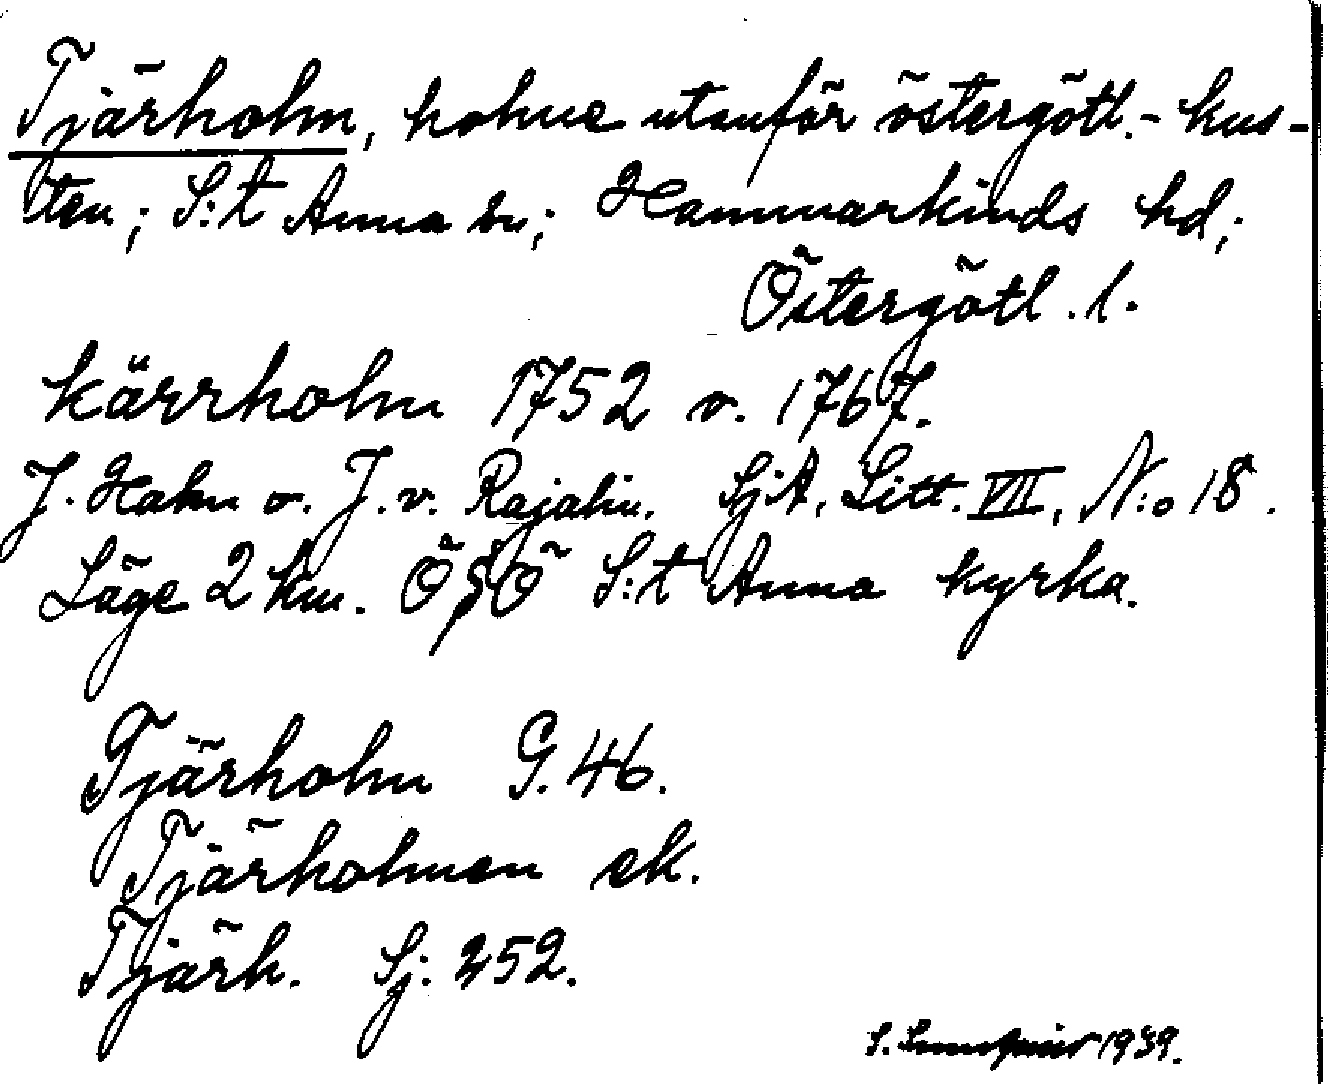 Tjärholm, holme utanför östergötl.-kus-
ten; S:t Anna sn; Hammarkinds hd;
Östergötl. l.
kärrholm 1752 o. 1767.
J. Hahn o. J. v. Rajalin. SjA. Litt. VII, N:o 18.
Läge 2 km. ÖSÖ S:t Anna kyrka.
Tjärholm G. 46.
Tjärholmen ek.
Tjärh. Sj. 252.
S. 1939.